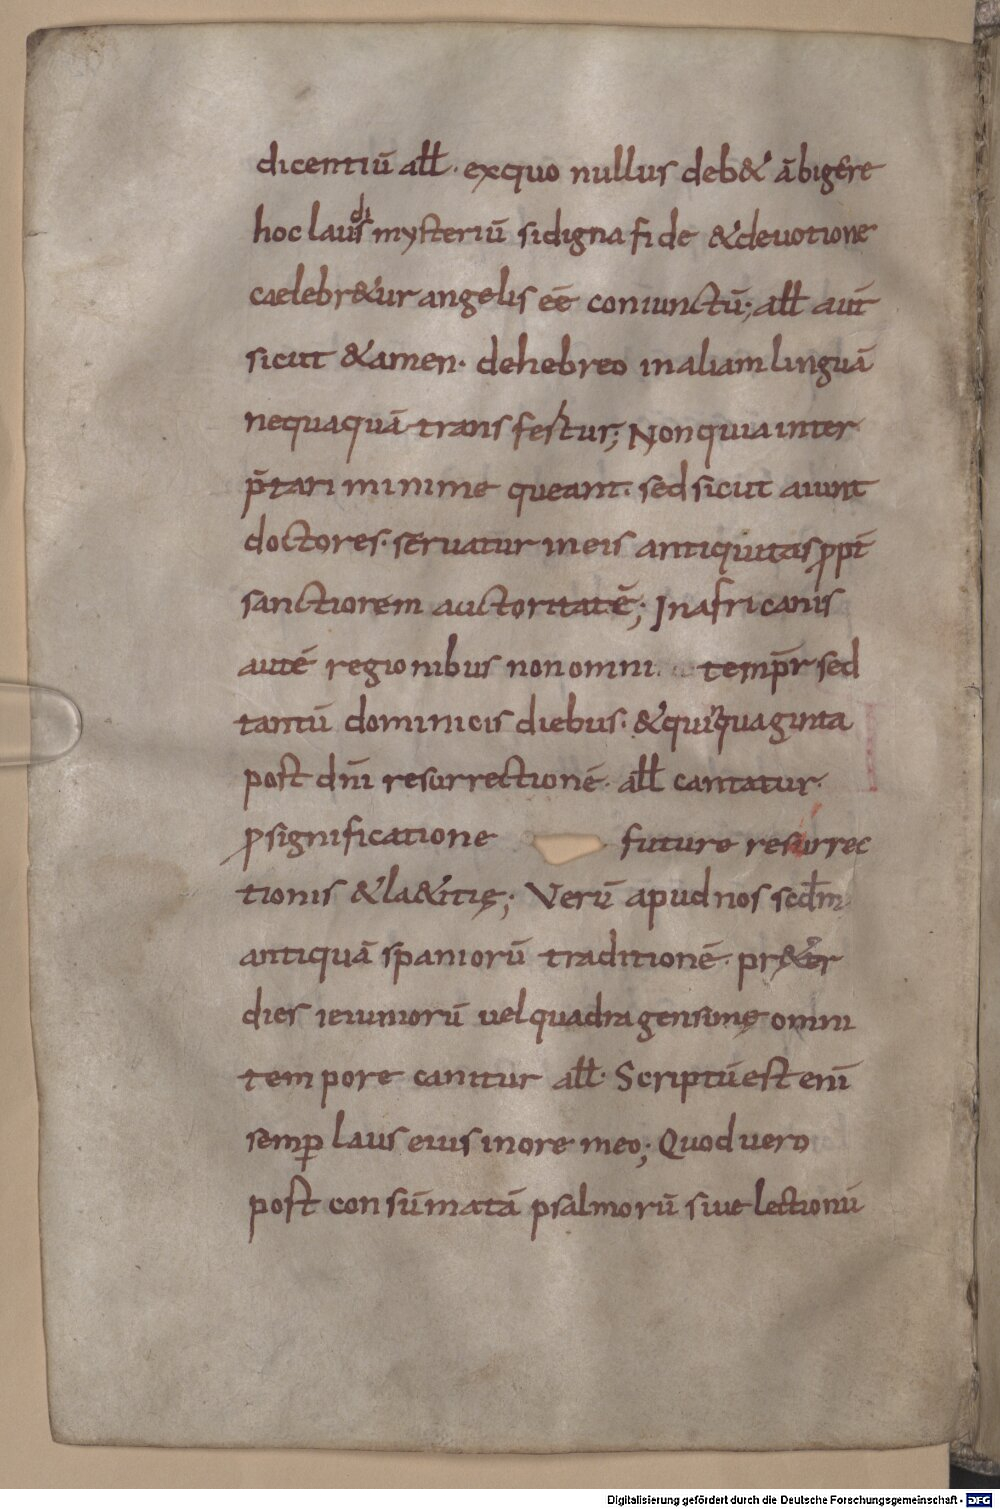 dicentiū all̄. exquo nullus deb& ābigere
hoc laudis mysteriū si digna fide &devotione
caelebr&ur angelis eē coniunctū; all̄ aut̄
sicut &amen. dehebreo inaliam linguā
nequaquā transfertur; Nonquia inter
p̄tari minime queant. sed sicut aiunt
doctores. servatur ineis antiquitas ꝓpt̄
sanctiorem auctoritatē; Inafricanis
autē regionibus non omni temp̄r sed
tantū dominicis diebus. &quinquaginta
post dn̄i resurrectionē. all̄ cantatur.
ꝓsignificatione future resurrec
tionis &la&itię; Verū apud nos scd̄m
antiquā spaniorū traditionē. pr&er
dies ieiuniorū vel quadragensimę omni
tempore canitur all̄. Scriptū est eni̅
semꝑ laus eius inore meo; Quod uero
post consūmatā psalmorū sive lectionū
Digitalisierung gefördert durch die Deutsche Forschungsgemeinschaft - DFG